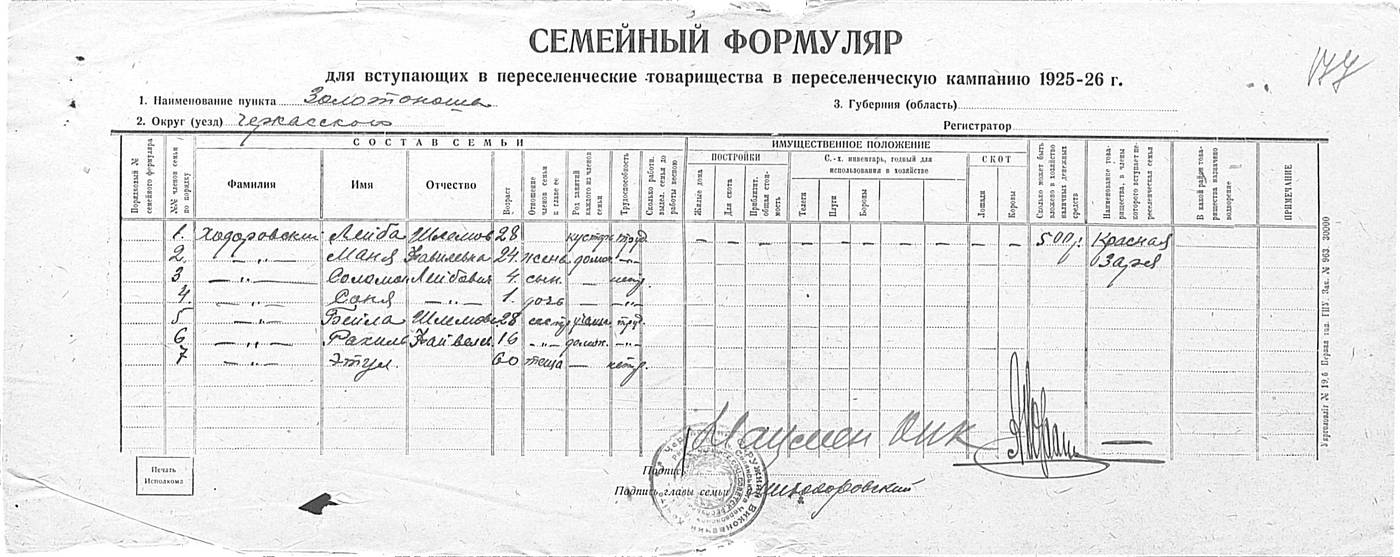 СЕМЕЙНЫЙ ФОРМУЛЯР
для вступающих в переселенческие товарищества в переселенческую кампанию 1925-26 г.
177
1. Наименование пункта Золотоноша
3. Губерния (область)
2. Округ (уезд) Черкасского
Регистратор
СОСТАВ СЕМЬИ
ИМУЩЕСТВЕННОЕ ПОЛОЖЕНИЕ
Порядковый № семейного формуляра
№№ членов семьи по порядку
Фамилия
Имя
Отчество
Возраст
Отношение членов семьи к главе ее
Род занятий каждого из членов семьи
Трудоспособность
Сколько работн. выдел. семья до работы весною
ПОСТРОЙКИ
Жилые дома
Для скота
Приблизит. общая стоимость
С.-х. инвентарь, годный для использования в хозяйстве
Телеги
Плуги
Бороны
СКОТ
Лошади
Коровы
Сколько может быть вложено в хозяйство наличных денежных средств
Наименование товарищества, в члены которого вступает переселенческая семья
В какой район товарищества назначено водворение
ПРИМЕЧАНИЕ
1. Ходоровский Лейба Шлемов 28 кустрь труд. – – – – – – – – – – – 500 р. Красная
2. — „ — Маня 24 жена домох. – „ – Заря
3 — „ — Соломон Лейбович 4. сын. — нетр.
4. — „ — Соня — „ — 1. дочь — – „ –
5 — „ — Бейла Шлемов 28 сестр труд.
6 — „ — Рахиль 16 – „ – домох. – „ –
7 — „ — Этул. 60 теща — нетр.
Печать
Исполкома
Подпись
Подпись главы семьи Ходоровский
Укрполиграф № 19, б. Первая гос. ГПУ. Зак. № 963. 30000